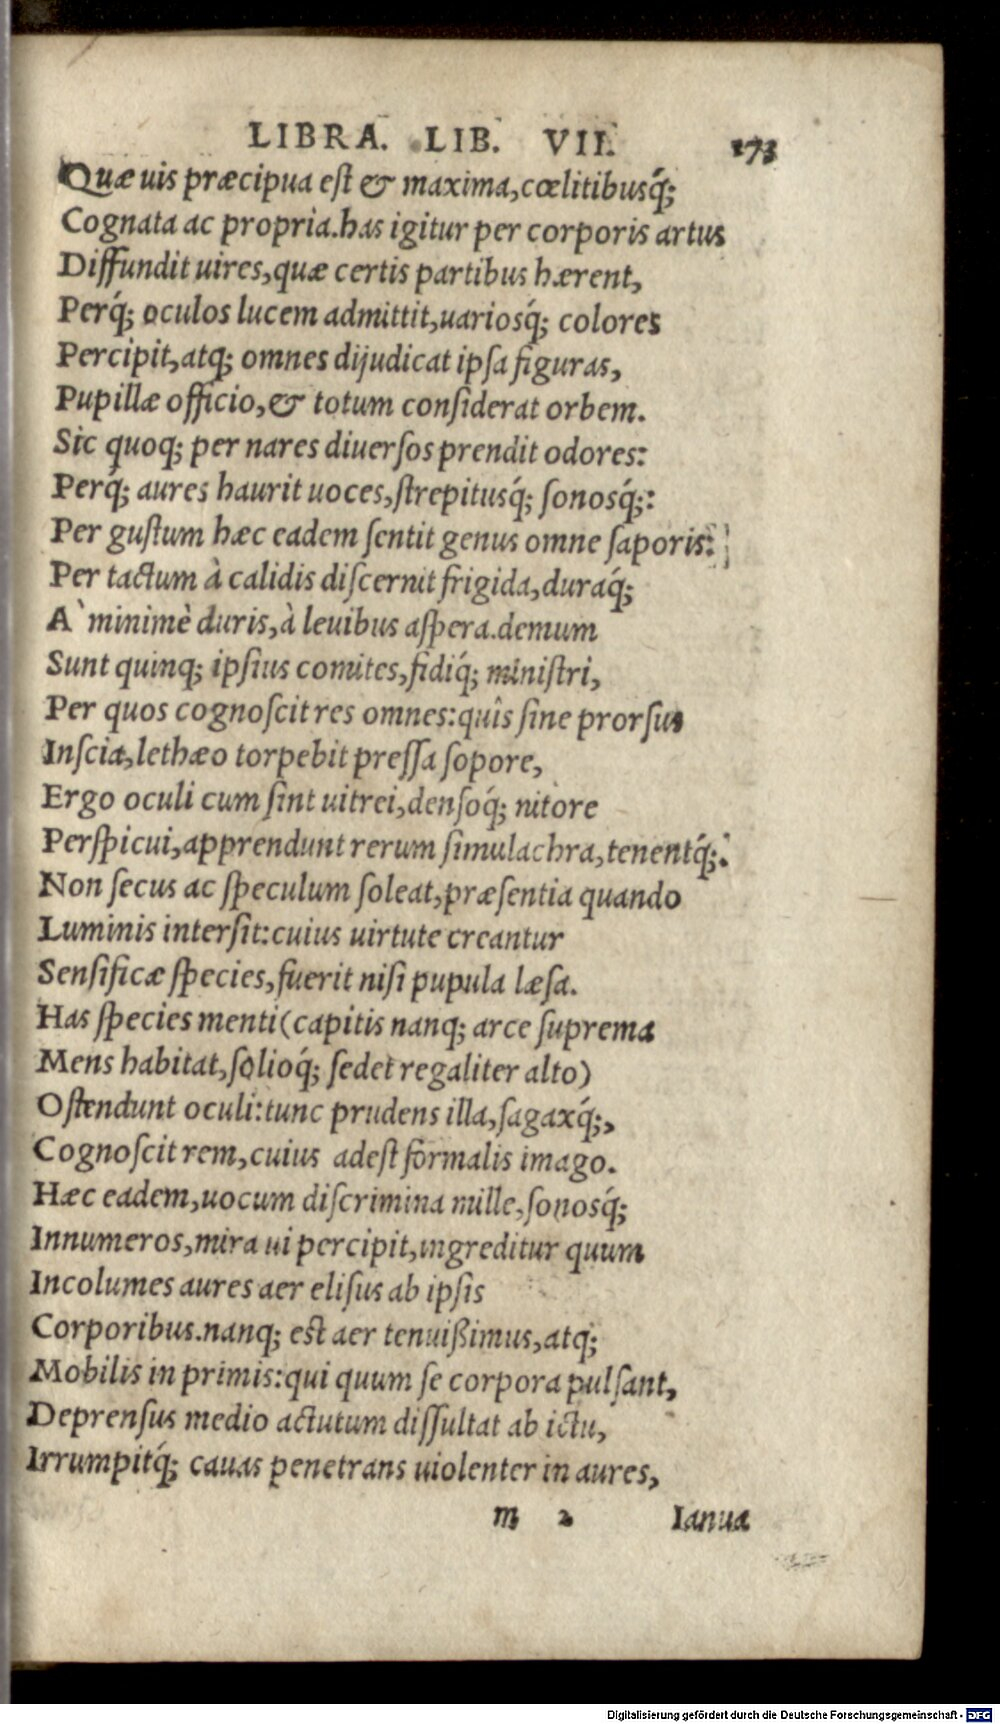 LIBRA. LIB. VII. 173
Quæ uis præcipua est & maxima, cœlitibusq́;
Cognata ac propria. has igitur per corporis artus
Diffundit uires, quæ certis partibus hærent,
Perq́; oculos lucem admittit, uariosq́; colores
Percipit, atq; omnes dijudicat ipsa figuras,
Pupillæ officio, & totum considerat orbem.
Sic quoq; per nares diuersos prendit odores:
Perq́; aures haurit uoces, strepitusq́; sonosq́;:
Per gustum hæc eadem sentit genus omne saporis:
Per tactum à calidis discernit frigida, duraq́;
A` minimè duris, à leuibus aspera. demum
Sunt quinq; ipsius comites, fidiq́; ministri,
Per quos cognoscit res omnes: quîs sine prorsus
Inscia, lethæo torpebit pressa sopore,
Ergo oculi cum sint uitrei, densoq́; nitore
Perspicui, apprendunt rerum simulachra, tenentq́;.
Non secus ac speculum soleat, præsentia quando
Luminis intersit: cuius uirtute creantur
Sensificæ species, fuerit nisi pupula læsa.
Has species menti (capitis nanq; arce suprema
Mens habitat, solioq́; sedet regaliter alto)
Ostendunt oculi: tunc prudens illa, sagaxq́;,
Cognoscit rem, cuius adest formalis imago.
Hæc eadem, uocum discrimina mille, sonosq́;
Innumeros, mira ui percipit, ingreditur quum
Incolumes aures aer elisus ab ipsis
Corporibus. nanq; est aer tenuißimus, atq;
Mobilis in primis: qui quum se corpora pulsant,
Deprensus medio actutum dissultat ab ictu,
Irrumpitq́; cauas penetrans uiolenter in aures,
m 2 Ianua
Digitalisierung gefördert durch die Deutsche Forschungsgemeinschaft - DFG